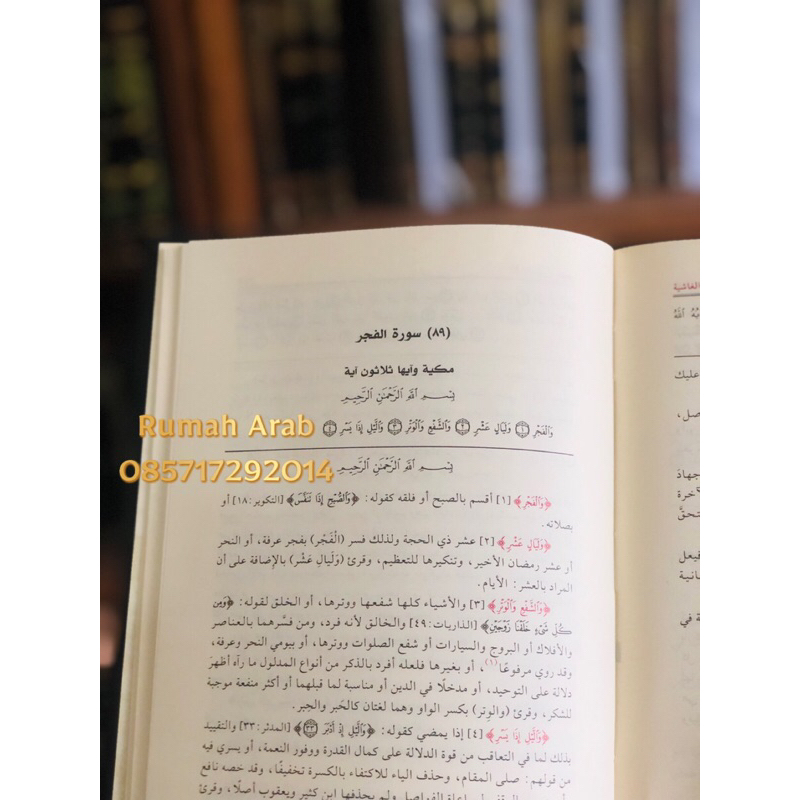 (٨٩) سورة الفجر
مكية وآيها ثلاثون آية
بِسْمِ اللَّهِ الرَّحْمَٰنِ الرَّحِيمِ
وَالْفَجْرِ ۝١ وَلَيَالٍ عَشْرٍ ۝٢ وَالشَّفْعِ وَالْوَتْرِ ۝٣ وَاللَّيْلِ إِذَا يَسْرِ ۝٤
بِسْمِ اللَّهِ الرَّحْمَٰنِ الرَّحِيمِ
﴿وَالْفَجْرِ﴾ [١] أقسم بالصبح أو فلقه كقوله: ﴿وَالصُّبْحِ إِذَا تَنَفَّسَ﴾ [التكوير: ١٨] أو
بصلاته.
﴿وَلَيَالٍ عَشْرٍ﴾ [٢] عشر ذي الحجة ولذلك فسر (الْفَجْر) بفجر عرفة، أو النحر
أو عشر رمضان الأخير، وتنكيرها للتعظيم، وقرئ (وَلَيالِ عَشْر) بالإضافة على أن
المراد بالعشر: الأيام.
﴿وَالشَّفْعِ وَالْوَتْرِ﴾ [٣] والأشياء كلها شفعها ووترها، أو الخلق لقوله: ﴿وَمِن
كُلِّ شَيْءٍ خَلَقْنَا زَوْجَيْنِ﴾ [الذاريات: ٤٩] والخالق لأنه فرد، ومن فسَّرهما بالعناصر
والأفلاك أو البروج والسيارات أو شفع الصلوات ووترها، أو بيومي النحر وعرفة،
وقد روي مرفوعًا(١)، أو بغيرها فلعله أفرد بالذكر من أنواع المدلول ما رآه أظهرَ
دلالة على التوحيد، أو مدخلًا في الدين أو مناسبة لما قبلهما أو أكثر منفعة موجبة
للشكر، وقرئ (والوِتر) بكسر الواو وهما لغتان كالحَبر والحِبر.
﴿وَاللَّيْلِ إِذَا يَسْرِ﴾ [٤] إذا يمضي كقوله: ﴿وَاللَّيْلِ إِذْ أَدْبَرَ ۝٣٣﴾ [المدثر: ٣٣] والتقييد
بذلك لما في التعاقب من قوة الدلالة على كمال القدرة ووفور النعمة، أو يسري فيه
من قولهم: صلى المقام، وحذف الياء للاكتفاء بالكسرة تخفيفًا، وقد خصه نافع
الفواصل ولم يحذفها ابن كثير ويعقوب أصلًا، وقرئ
Rumah Arab
085717292014
الغاشية
عليك
جهادَ
تحقَّ
فيفعل
ة في